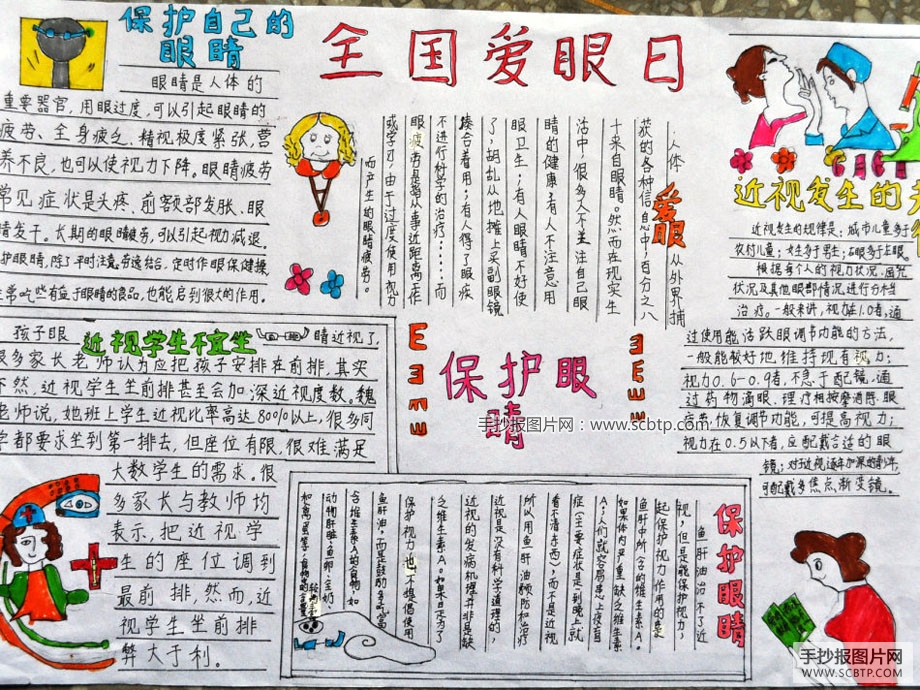 保护自己的
眼睛
眼睛是人体的
重要器官,用眼过度,可以引起眼睛的
疲劳、全身疲乏、精视极度紧张,营
养不良,也可以使视力下降。眼睛疲劳
常见症状是头疼、前客额部发胀、眼
睛发干。长期的眼睛疲劳,可以引起视力减退。
护眼睛,除了平时注意劳逸结合,定时作眼保健操,
常吃些有益于眼睛的食品,也能启到很大的作用。
全国爱眼日
爱眼
人体从外界捕
获的各种信息中,百分之八
十来自眼睛。然而在现实生
活中,很多人不生注自己眼
睛的健康;有人不注意用
眼卫生;有人眼睛不好使
了,胡乱从地摊上买副眼镜
凑合着用;有人得了眼疾
不进行科学的治疗……而
眼疲劳是指从事近距离工作
或学习,由于过度使用视力
而产生的眼睛疲劳。
近视发生的
近视发生的规律是:城市儿童多于
农村儿童;女生多于男生;右眼多于左眼。
根据每个人的视力状况、屈光
状况及其他眼部情况进行分析
治疗。一般来讲,视力在1.0者,通
过使用能活跃眼调节功能的方法,
一般能被好地维持现有视力;
视力0.6-0.9者,不急于配镜,通
过药物滴眼、理疗相按摩消除眼
疲劳恢复调节功能,可提高视力;
视力在0.5以下者,应配戴合适的眼
镜;对于近视逐年加深的青少年,
可配戴多焦点渐变镜。
近视学生不宜坐
孩子眼睛近视了,
很多家长老师认为应把孩子安排在前排,其实
不然,近视学生坐前排甚至会加深近视度数。魏
老师说,她班上学生近视比率高达80%以上,很多同
学都要求坐到第一排去,但座位有限,很难满足
大数学生的需求。很
多家长与教师均
表示,把近视学
生的座位调到
最前排,然而,近
视学生坐前排
弊大于利。
E
E
保护眼
睛
手抄报图片网:www.scbtp.com
保护眼睛
鱼肝油治不了近
视,但是能保护视力,
起保护视力作用的是
鱼肝中所含的维生素A。
如果体内严重缺乏维生素
A,人们就容易患上夜盲
症(主要症状是天到晚上就
看不清东西),而不是近视
所以用鱼肝油预防和治疗
近视是没有科学道理的,
近视的发病机理并非是缺
乏维生素A。如果只是为了
保护视力,也不提倡使用
鱼肝油,而是鼓励多吃富
含维生素A的食物,如
动物肝脏、鱼卵、全奶
手抄报图片网
WWW.SCBTP.COM